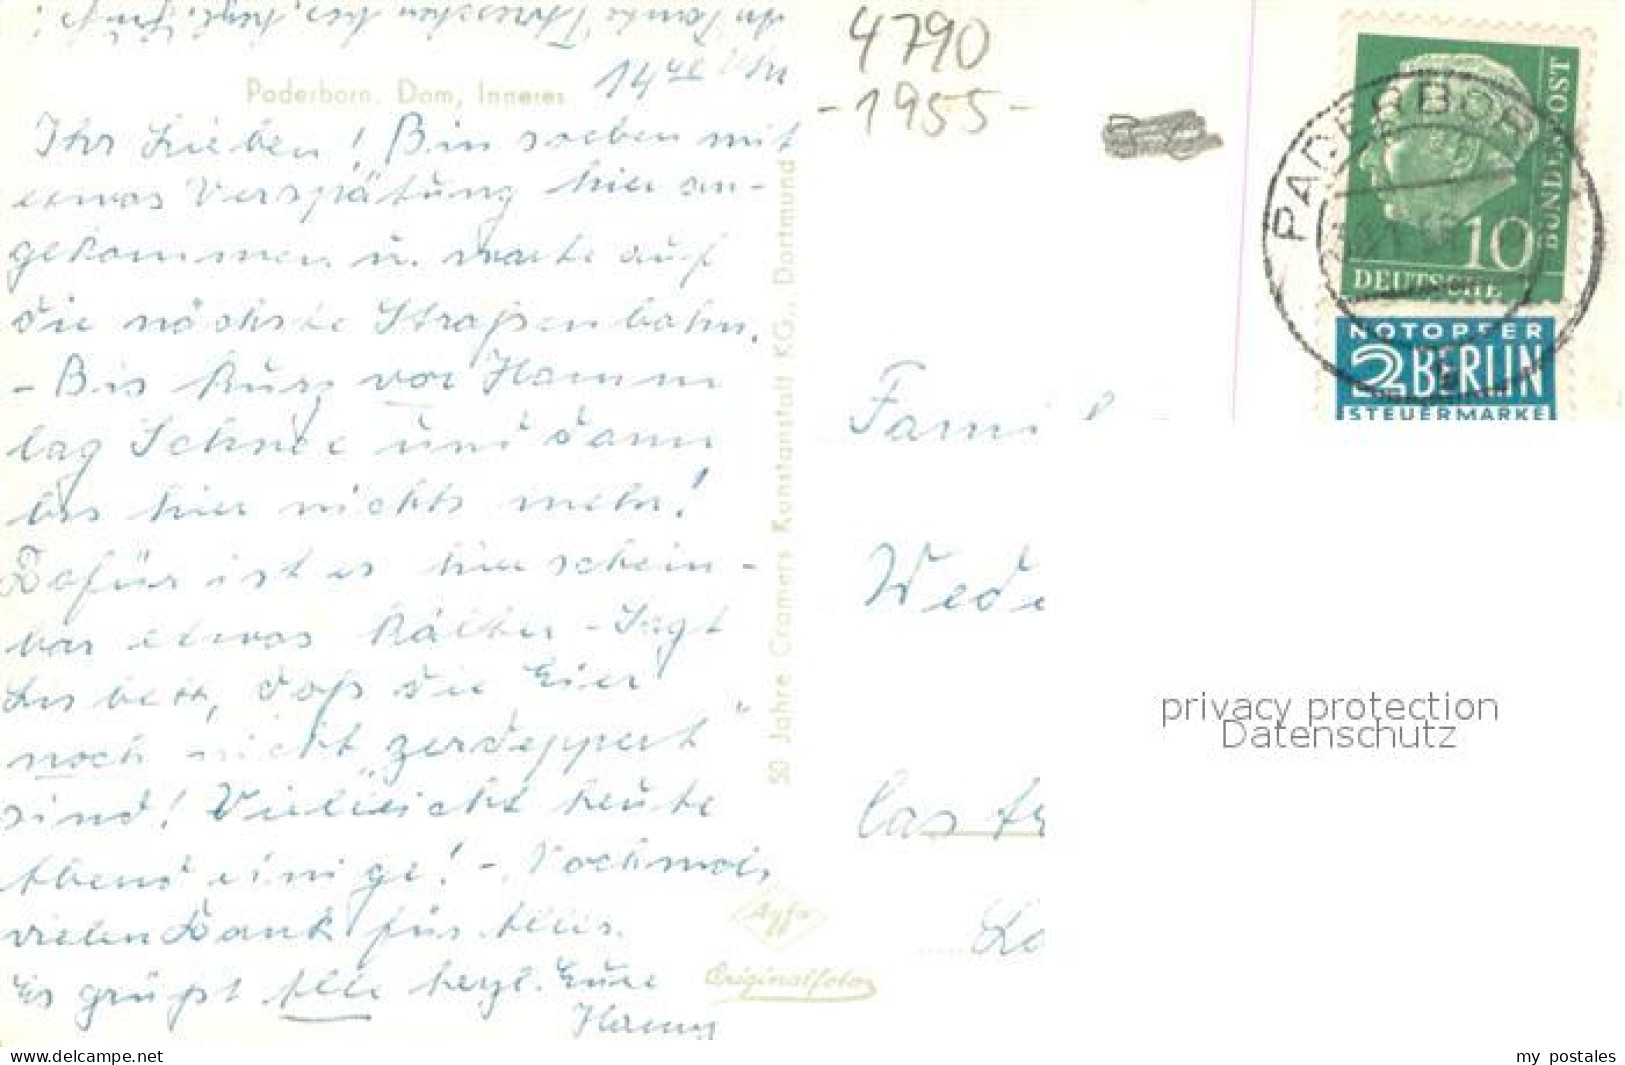 An Tante Threschen bes. herzl. Grüße!
14 40 Uhr
Paderborn, Dom, Inneres
Ihr Lieben! Bin soeben mit
etwas Verspätung hier an-
gekommen u. warte auf
die nächste Straßenbahn.
- Bis kurz vor Hamm
lag Schnee und dann
bis hier nichts mehr!
Dafür ist es hier schein-
bar etwas kälter - Sagt
Lisbeth, daß die Eier
noch nicht "zerdeppert"
sind! Vielleicht heute
Abend einige! - Nochmals
vielen Dank für Alles.
Es grüßt Alle herzl. Eure
Hanny
50 Jahre Cramers Kunstanstalt KG., Dortmund
Agfa
Originalfoto
4790
-1955-
PADERBORN
10
DEUTSCHE
BUNDESPOST
NOTOPFER
2 BERLIN
STEUERMARKE
Famil
Wede
Castr
privacy protection
Datenschutz
www.delcampe.net
my postales